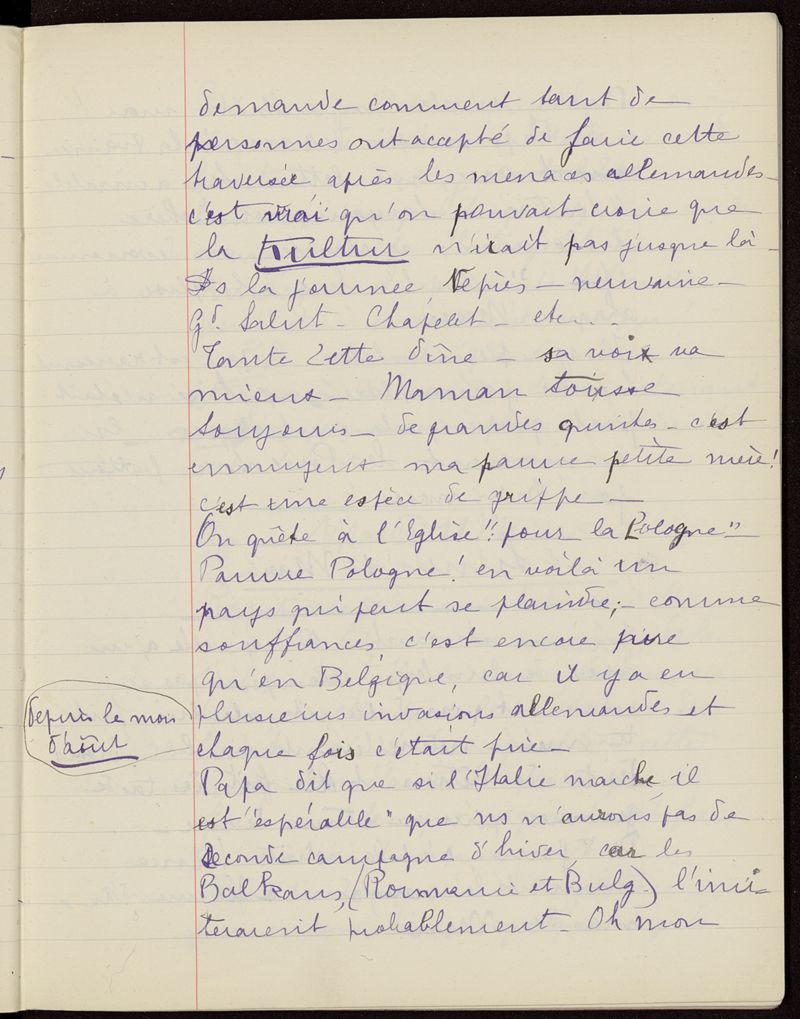 demande comment tant de
personnes ont accepté de faire cette
traversée après les menaces allemandes –
c'est vrai qu'on pouvait croire que
la Kultur n'irait pas jusque là –
Ds la journée Vêpres – neuvaine –
Gd. Salut – Chapelet – etc...
Tante Zette dîne – sa voix va
mieux – Maman tousse
toujours – de grandes quintes – c'est
ennuyeux ma pauvre petite mère!
c'est une espèce de grippe –
On quête à l'Eglise "pour la Pologne" –
Pauvre Pologne! en voilà un
pays qui peut se plaindre; – comme
souffrances, c'est encore pire
qu'en Belgique, car il y a eu
plusieurs invasions allemandes et
depuis le mois
d'août
chaque fois c'était pire –
Papa dit que si l'Italie marche, il
est "espérable" que ns n'aurons pas de
seconde campagne d'hiver, car les
Balkans, (Roumanie et Bulg.) l'imi-
teraient probablement – Oh mon